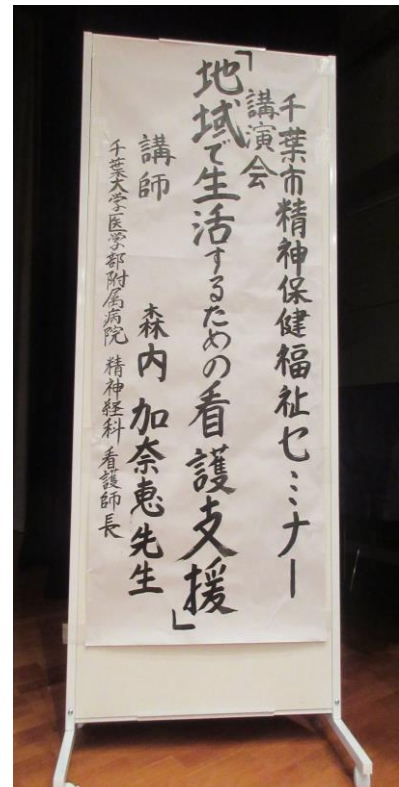 千葉市精神保健福祉セミナー
講演会
「地域で生活するための看護支援」
講師 森内 加奈恵先生
千葉大学医学部附属病院 精神経科 看護師長